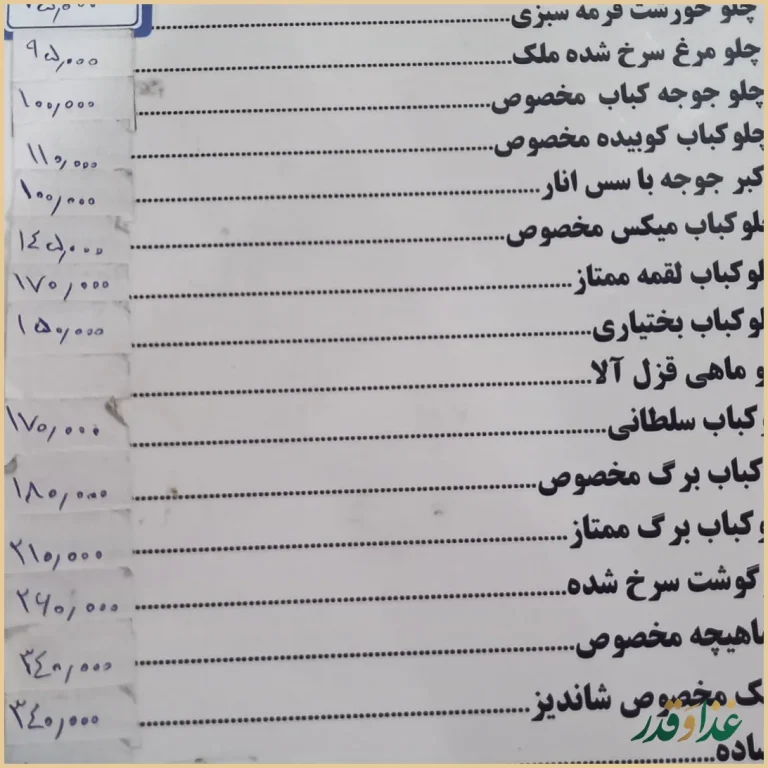 چلو خورشت قرمه سبزی
چلو مرغ سرخ شده ملک ۹۵,۰۰۰
چلو جوجه کباب مخصوص ۱۰۰,۰۰۰
چلو کباب کوبیده مخصوص ۱۱۰,۰۰۰
کبر جوجه با سس انار ۱۰۰,۰۰۰
لو کباب میکس مخصوص ۱۴۵,۰۰۰
لو کباب لقمه ممتاز ۱۷۰,۰۰۰
لو کباب بختیاری ۱۵۰,۰۰۰
و ماهی قزل آلا
و کباب سلطانی ۱۷۰,۰۰۰
کباب برگ مخصوص ۱۸۰,۰۰۰
و کباب برگ ممتاز ۲۱۰,۰۰۰
گوشت سرخ شده ۲۶۰,۰۰۰
ماهیچه مخصوص ۳۴۰,۰۰۰
ک مخصوص شاندیز ۳۴۰,۰۰۰
ساده
غذا و قدر